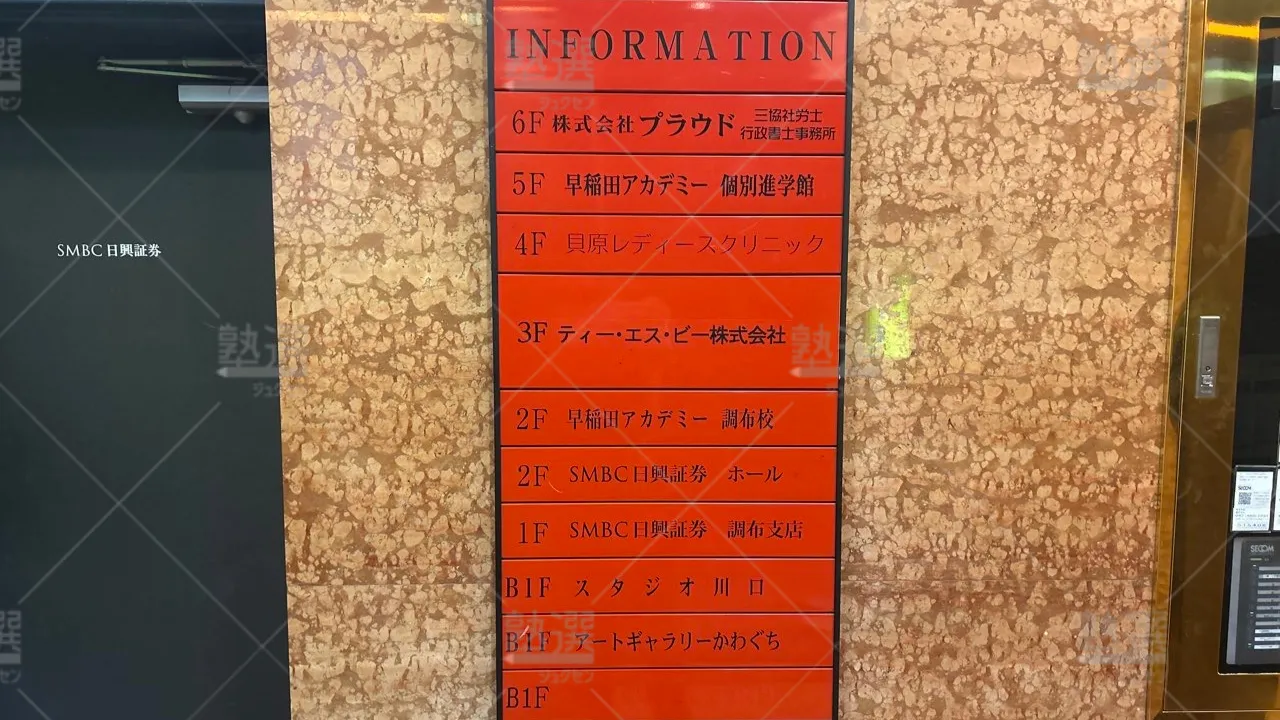 INFORMATION
6F 株式会社 プラウド 三協社労士
行政書士事務所
5F 早稲田アカデミー 個別進学館
4F 貝原レディースクリニック
3F ティー・エス・ビー株式会社
2F 早稲田アカデミー 調布校
2F SMBC日興証券 ホール
1F SMBC日興証券 調布支店
B1F スタジオ川口
B1F アートギャラリーかわぐち
B1F
SMBC日興証券
SECOM
SECOM
塾選
ジュクセン